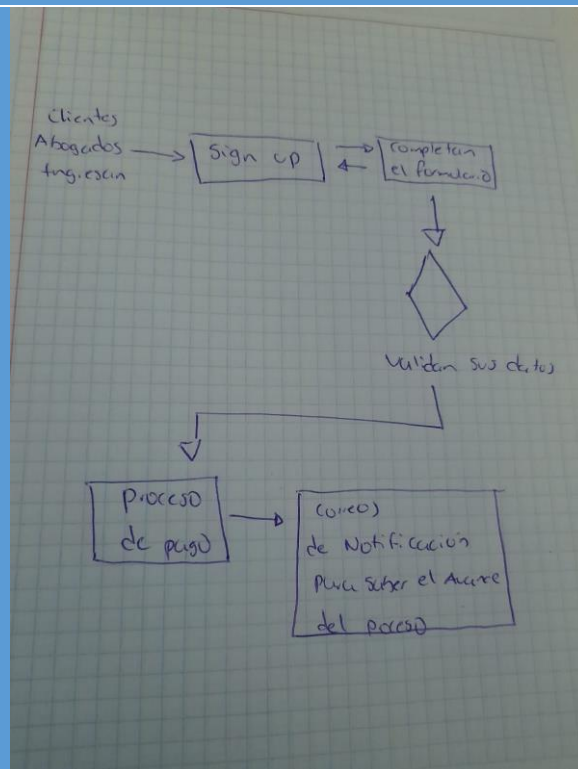 Clientes
Abogados
Ingresan
Sign up
Completan
el formulario
Validan sus datos
Proceso
de pago
Correo
de Notificación
para saber el Avance
del proceso